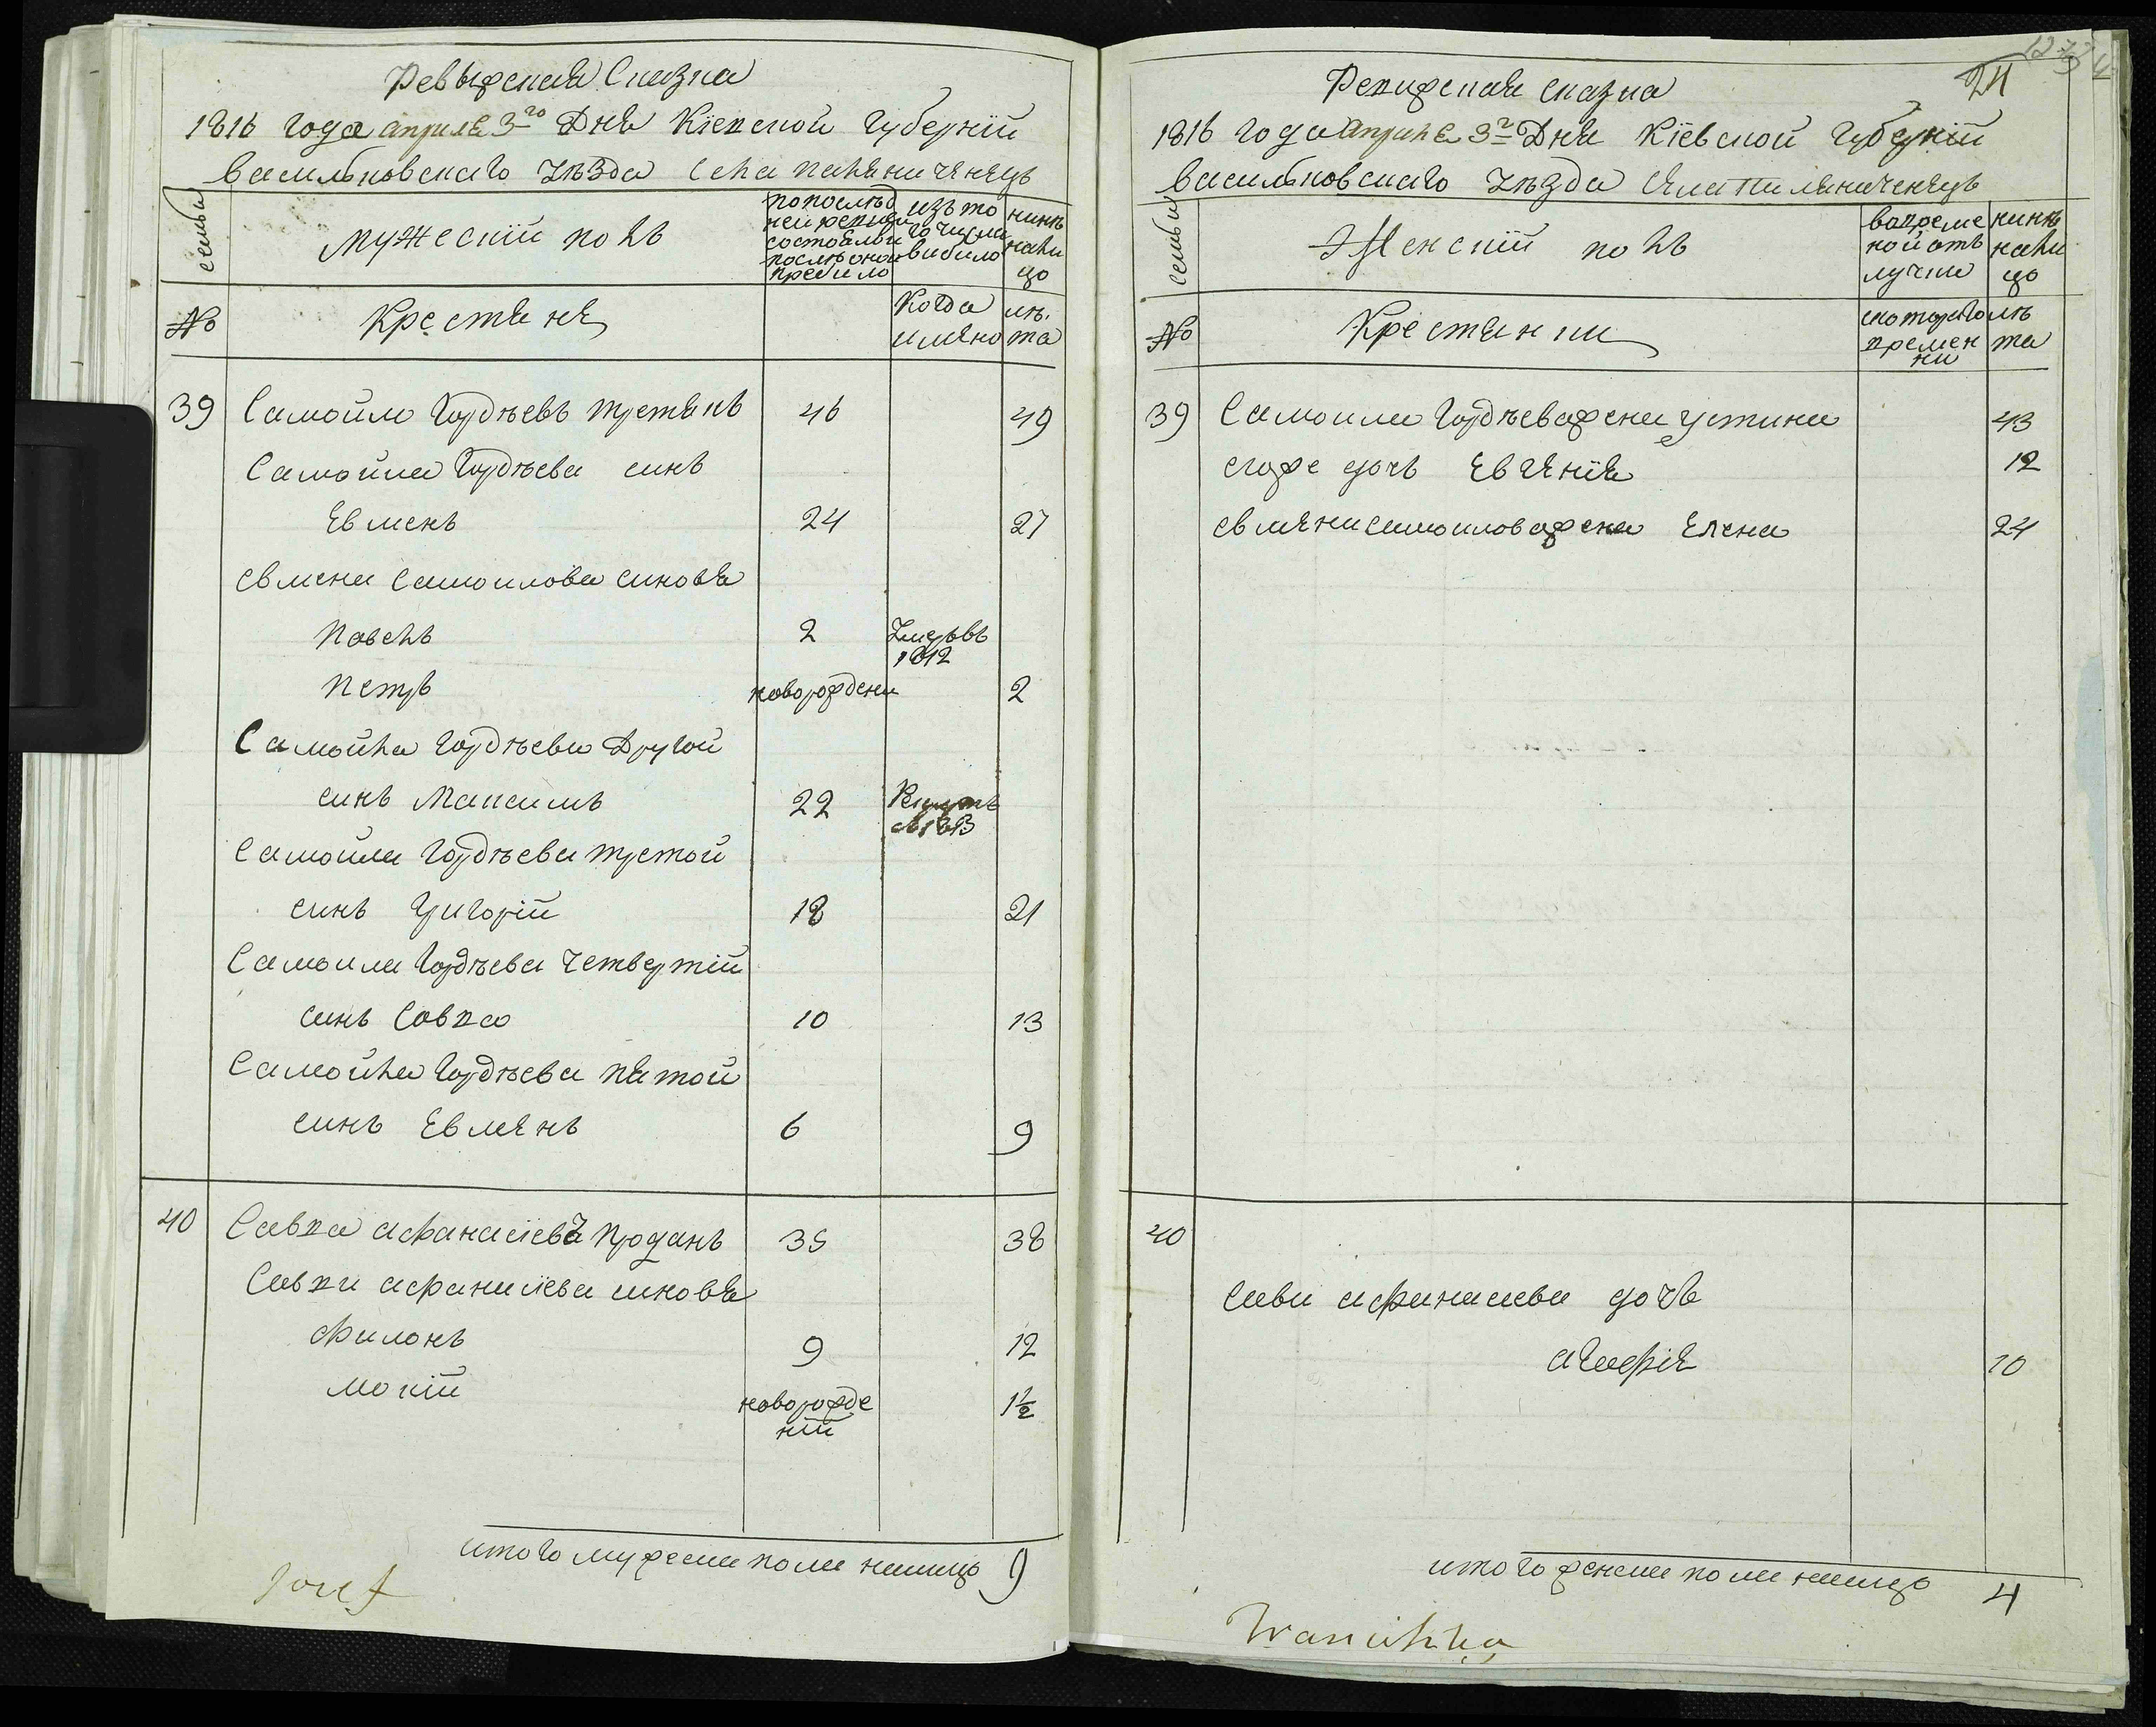 Ревызская Сказка
1816 Года апреля 3го Дня Кіевской Губерніи
василковскаго уѣзда Села палѣниченецъ
семьи
мужескій полъ
по послѣд
ней ревизіи
состояло и
после оной
прибило
изъ то
го числа
вибило
нинѣ
нали
цо
№
Крестяне
Когда
имяно
лѣ
та
39 Самойло Гордѣевъ третякъ 46 49
Самойла Гордѣева синъ
Евменъ 24 27
Евмена Самоилова синовя
Павелъ 2 Умеръ въ
1812
Петръ новорожденн 2
Самойла Гордѣева Другой
синъ Максимъ 22
Самойла Гордѣева третой
синъ Григорій 18 21
Самоила Гордѣева Четвертій
синъ Савка 10 13
Самойла Гордѣева пятой
синъ Евменъ 6 9
40 Савка Афанасіевъ Проданъ 35 38
Савки Афанасіева синовя
Филонъ 9 12
Мокій новорожде
ній 1½
итого мужеска пола налицо 9
Josef
24
Ревизская сказка
1816 года Апреля 3го Дня Кіевской Губерніи
васильковскаго уѣзда села пиляниченецъ
семьи
Женскій полъ
во време
ной отъ
лучки
нинѣ
нали
цо
№
Крестянки
с котораго
времен
ни
лѣ
та
39 Самоила Гордѣева жена Устина 43
егоже дочъ Евгенія 12
Евмена Самоилова жена Елена 24
40
Савки Афанасиева дочъ
Агафія 10
итого женска пола налицо 4